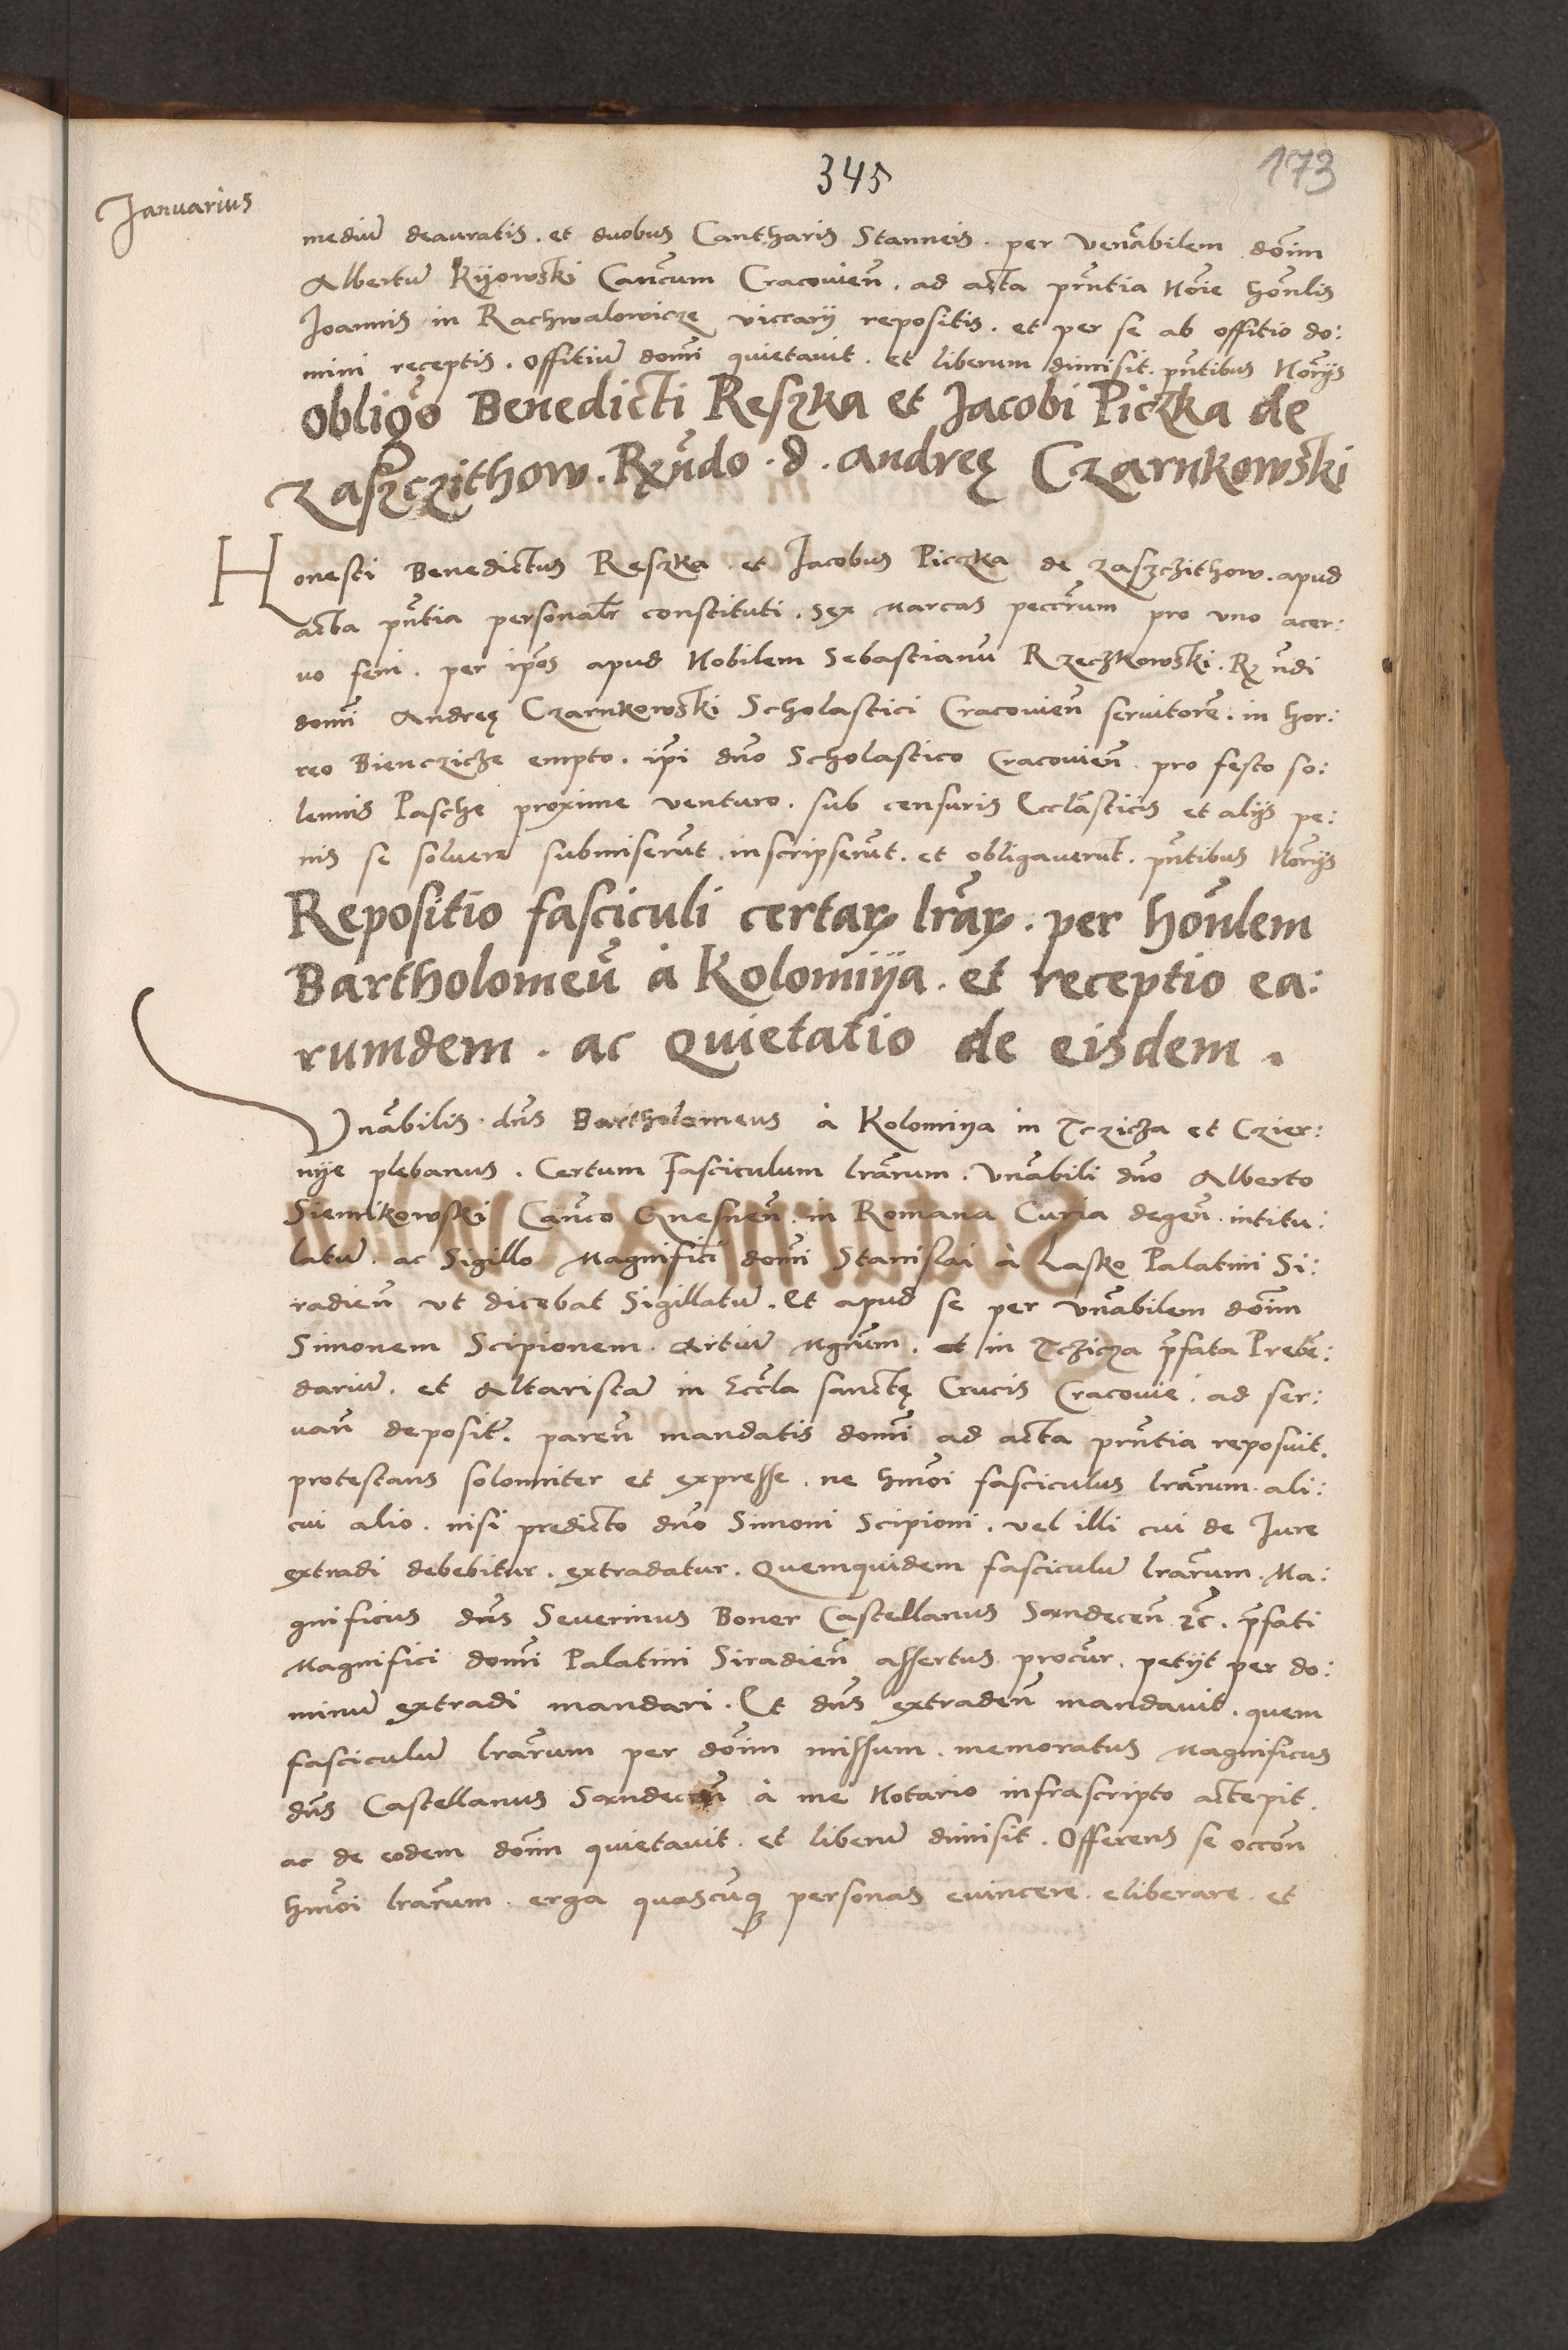 345
173
Januarius
mediū deauratis . et duobus Cantharis Stanneis . per venãbilem doīm
Albertū Kijowski Cañcum Cracovieñ . ad acta pr̃ntia Noīe hoñlis
Joannis in Rachwalowicze viccarij repositis . et per se ab offitio do:
mini receptis . offitiū domĩ quietavit . et liberum dimisit . pñtibus Noĩjs
Obligõ Benedicti Reszka et Jacobi Piczka de
Zaszczithow . Rx̃ndo . d . Andreę Czarnkowski
Honesti Benedictus Reszka . et Jacobus Piczka de Zaszczithow . apud
acta pñtia personalr̃ constituti . sex Marcas peccr̃um pro uno acer:
vo feni . per ip̃os apud Nobilem Sebastianū Rzeczkowski . Rx̃ndi
domĩ Andreę Czarnkowski Scholastici Cracovieñ servitorẽ . in hor:
reo Biencziche empto . ip̃i dño Scholastico Cracovieñ . pro festo so:
lennis Pasche proxime venturo . sub censuris Ecclãsticis et alijs pe:
nis se solvere submiserũt . inscripserũt . et obligaverũt . pñtibus Noĩjs
Repositio fasciculi certaꝝ lrãꝝ . per hoñlem
Bartholomeũ à Kolomiÿa . et receptio ea:
rumdem . ac Quietatio de eisdem .
Vnãbilis . dñs Bartholomeus à Kolomiya in Tczicza et Czier:
nije plebanus . Certum Fasciculum lrãrum . Vnãbili dño Alberto
Siemikowski Cañco Gnesneñ . in Romana Curia degeñ . intitu:
latũ . ac Sigillo Magnifici domĩ Stanislai à Lasko Palatini Si:
radieñ ut dicebat Sigillatũ . Et apud se per vnãbilem doīm
Simonem Scipionem . Artiũ Mgr̃um . et in Tczicza p̃fata Prebẽ:
dariũ . et Altaristã in Eccl̃a sanctę Crucis Cracovie . ad ser:
vañ deposit̃ . pareñ mandatis domĩ ad acta pr̃ntia reposuit .
protestans solenniter et expresse . ne hm̃oi fasciculus lrãrum . ali:
cui alio . nisi predicto dño Simoni Scipioni . vel illi cui de Jure
extradi debebitur . extradatur . Quemquidem fasciculũ lrãrum . Ma:
gnificus dñs Severinus Boner Castellanus Sandeceñ ꝛc̃ . p̃fati
Magnifici domĩ Palatini Siradieñ assertus procur̃ . petijt per do:
minũ extradi mandari . Et dñs extradeñ mandavit . quem
fasciculũ lrãrum per doīm missum . memoratus Magnificus
dñs Castellanus Sandeceñ à me Notario infrascripto accepit .
ac de eodem doīm quietavit . et liberũ dimisit . Offerens se occoñ
hm̃oi lrãrum . erga quascũq personas evincere . eliberare . et